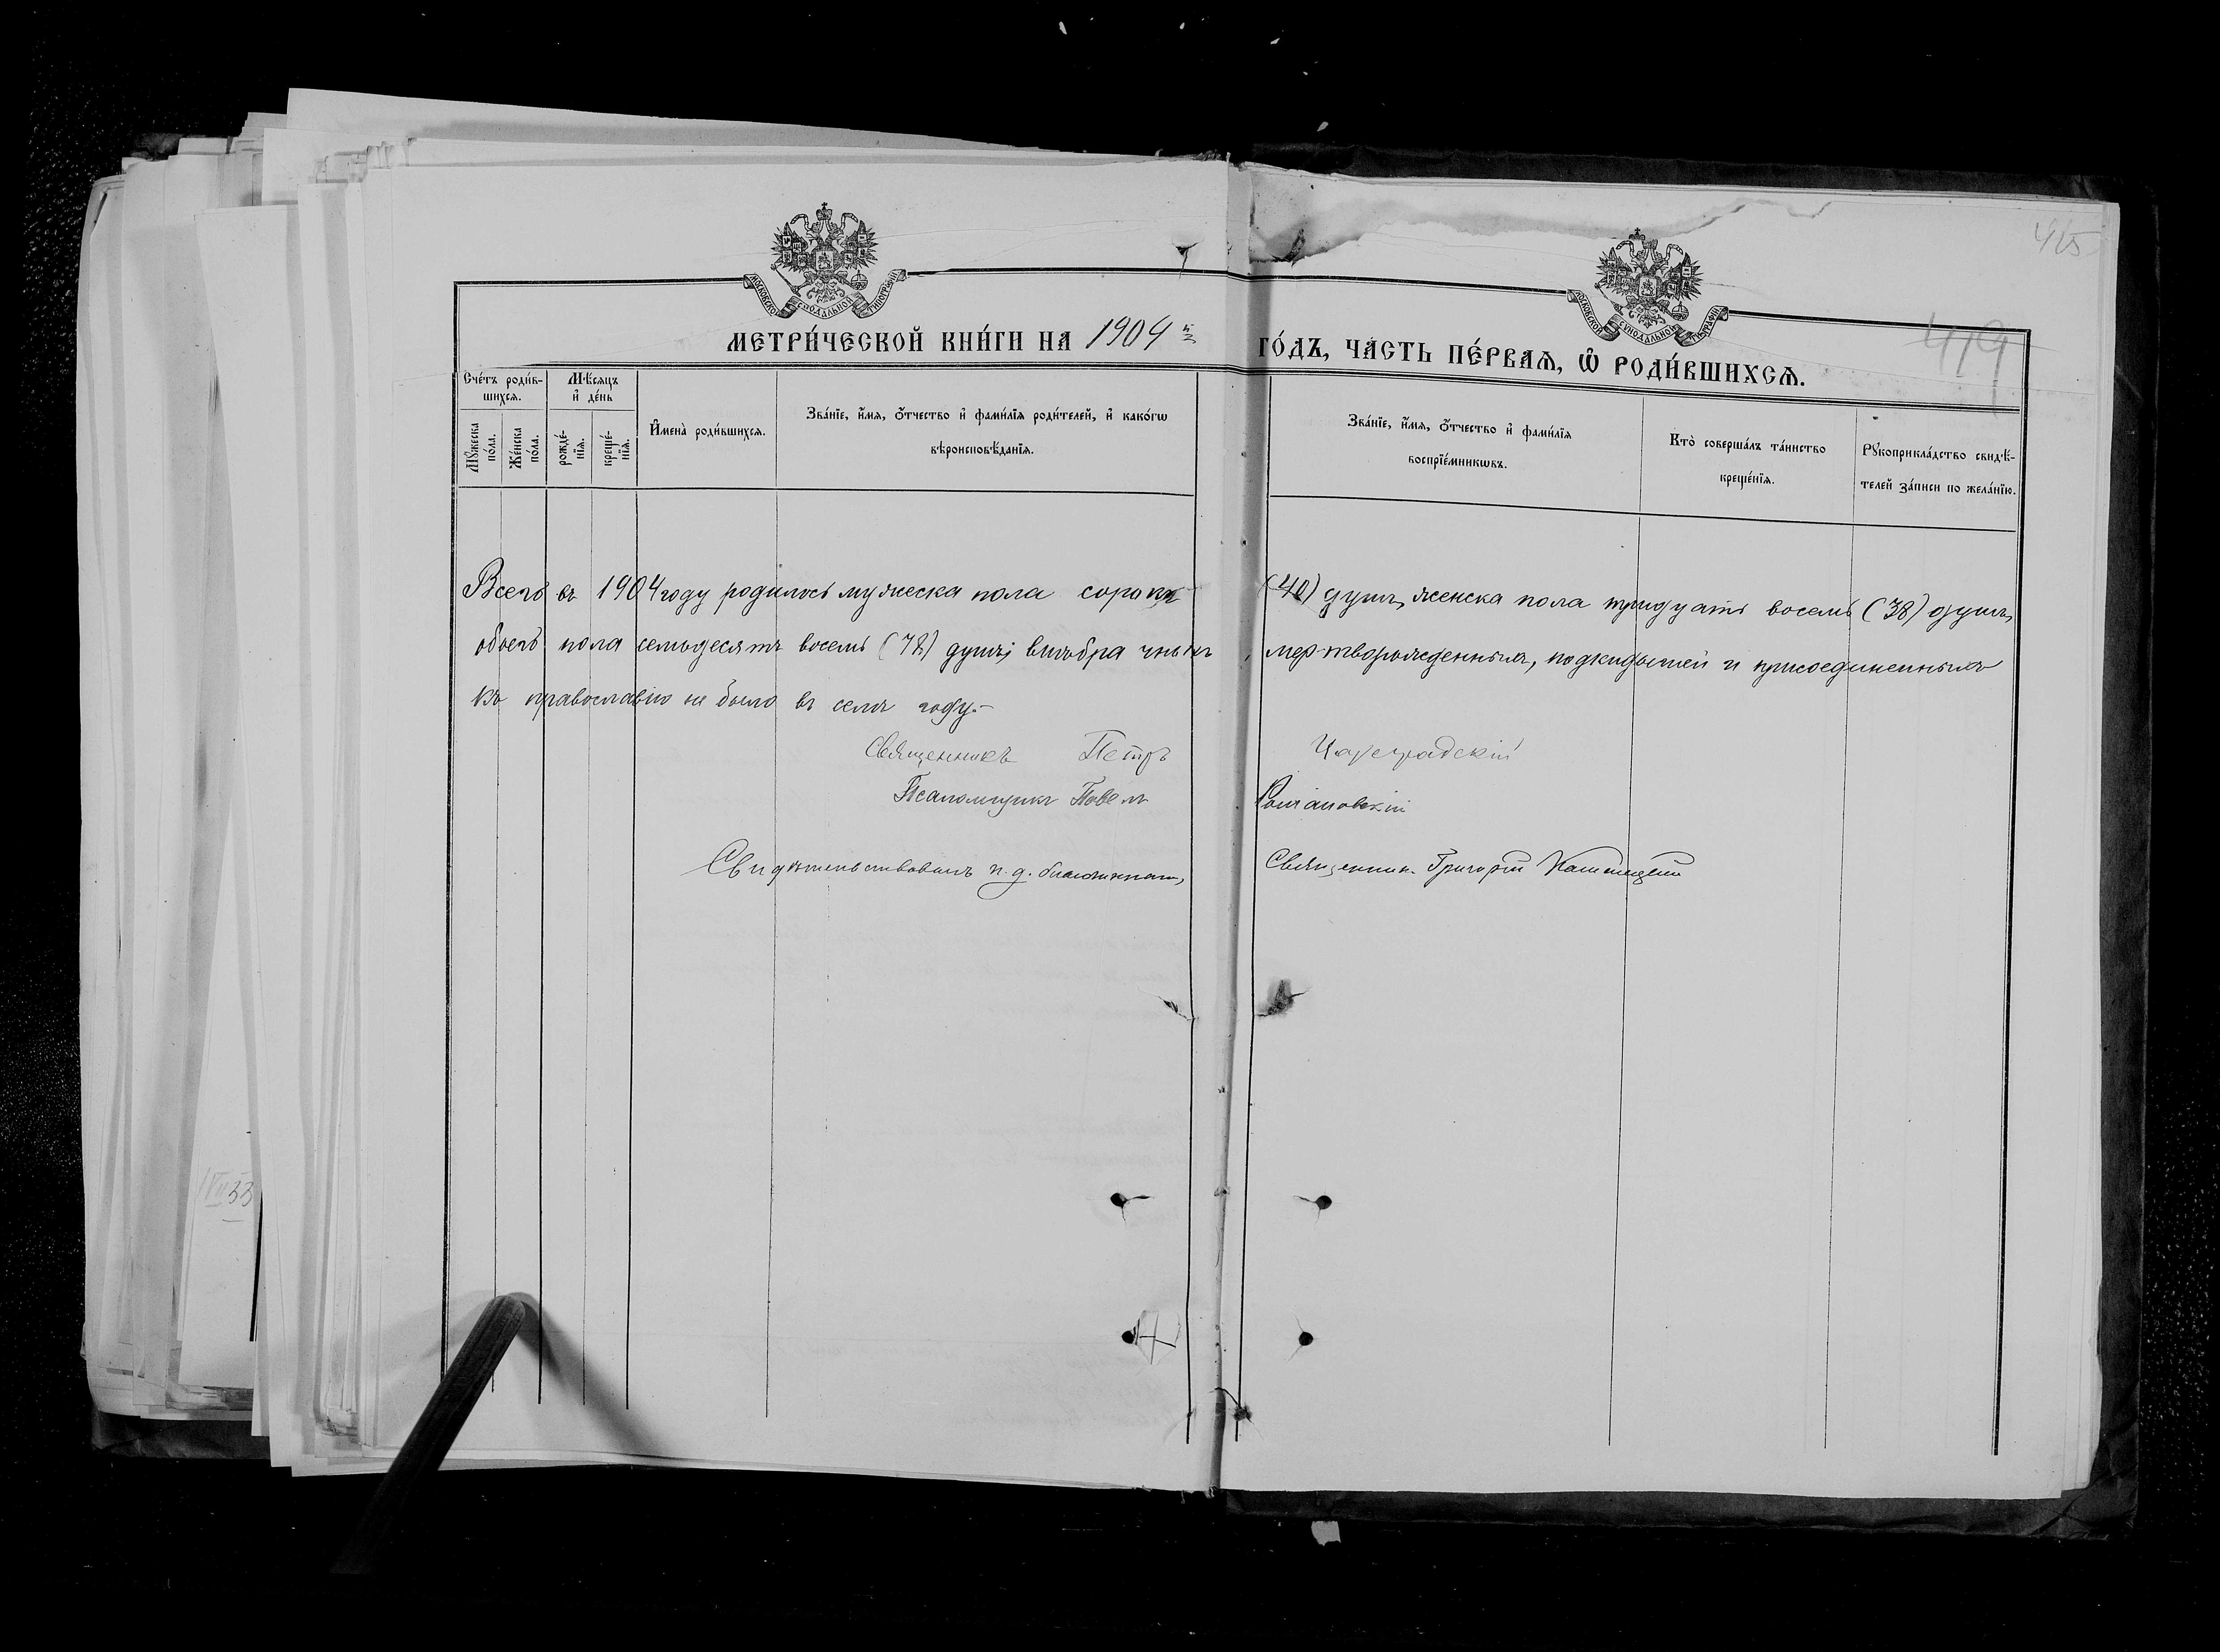 МОСКОВСКОЙ СѴНОДАЛЬНОЙ ТИПОГРАФІИ
МОСКОВСКОЙ СѴНОДАЛЬНОЙ ТИПОГРАФІИ
415
419
МЕТРИ́ЧЕСКОЙ КНИ́ГИ НА 1904 й ГО́ДЪ, ЧА́СТЬ ПЕ́РВАѦ, Ѽ РОДИ́ВШИХСѦ.
Сче́тъ роди́в-
шихсѧ.
Мѣ́сѧцъ
и҆ де́нь
Мꙋ́жеска
по́ла.
Же́нска
по́ла.
рожде́-
нїѧ.
креще́-
нїѧ.
И҆мена̀ роди́вшихсѧ.
Зва́нїе, и҆́мѧ, ѻ҆́тчество и҆ фами́лїѧ роди́телей, и҆ како́гѡ
вѣроисповѣ́данїѧ.
Зва́нїе, и҆́мѧ, ѻ҆́тчество и҆ фами́лїѧ
воспрїе́мникѡвъ.
Кто̀ соверша́лъ та́инство
креще́нїѧ.
Рꙋкоприкла́дство свидѣ́-
телей за́писи по жела́нїю.
Всего въ 1904 году родилось мужеска пола сорокъ (40) душъ, женска пола тридцать восемь (38) душъ,
обоего пола семьдесятъ восемь (78) душъ; внѣбрачныхъ, мертворожденныхъ, подкидышей и присоединенныхъ
къ православію не было въ семъ году.
Священникъ Петръ Чареградскій
Псаломщикъ Павелъ
Свидѣтельствовалъ и. д. благочиннаго, Священникъ Григорій
VII 33